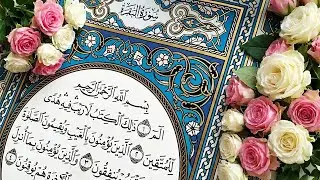 سُورَةُ البَقَرَةِ
بِسْمِ اللَّهِ الرَّحْمَٰنِ الرَّحِيمِ
الٓمٓ ١ ذَٰلِكَ الْكِتَابُ لَا رَيْبَ فِيهِ هُدًى
لِلْمُتَّقِينَ ٢ الَّذِينَ يُؤْمِنُونَ بِالْغَيْبِ وَيُقِيمُونَ الصَّلَاةَ
يُنْفِقُونَ ٣ وَالَّذِينَ يُؤْمِنُونَ بِمَا أُنْزِلَ
هُمْ يُوقِنُونَ ٤